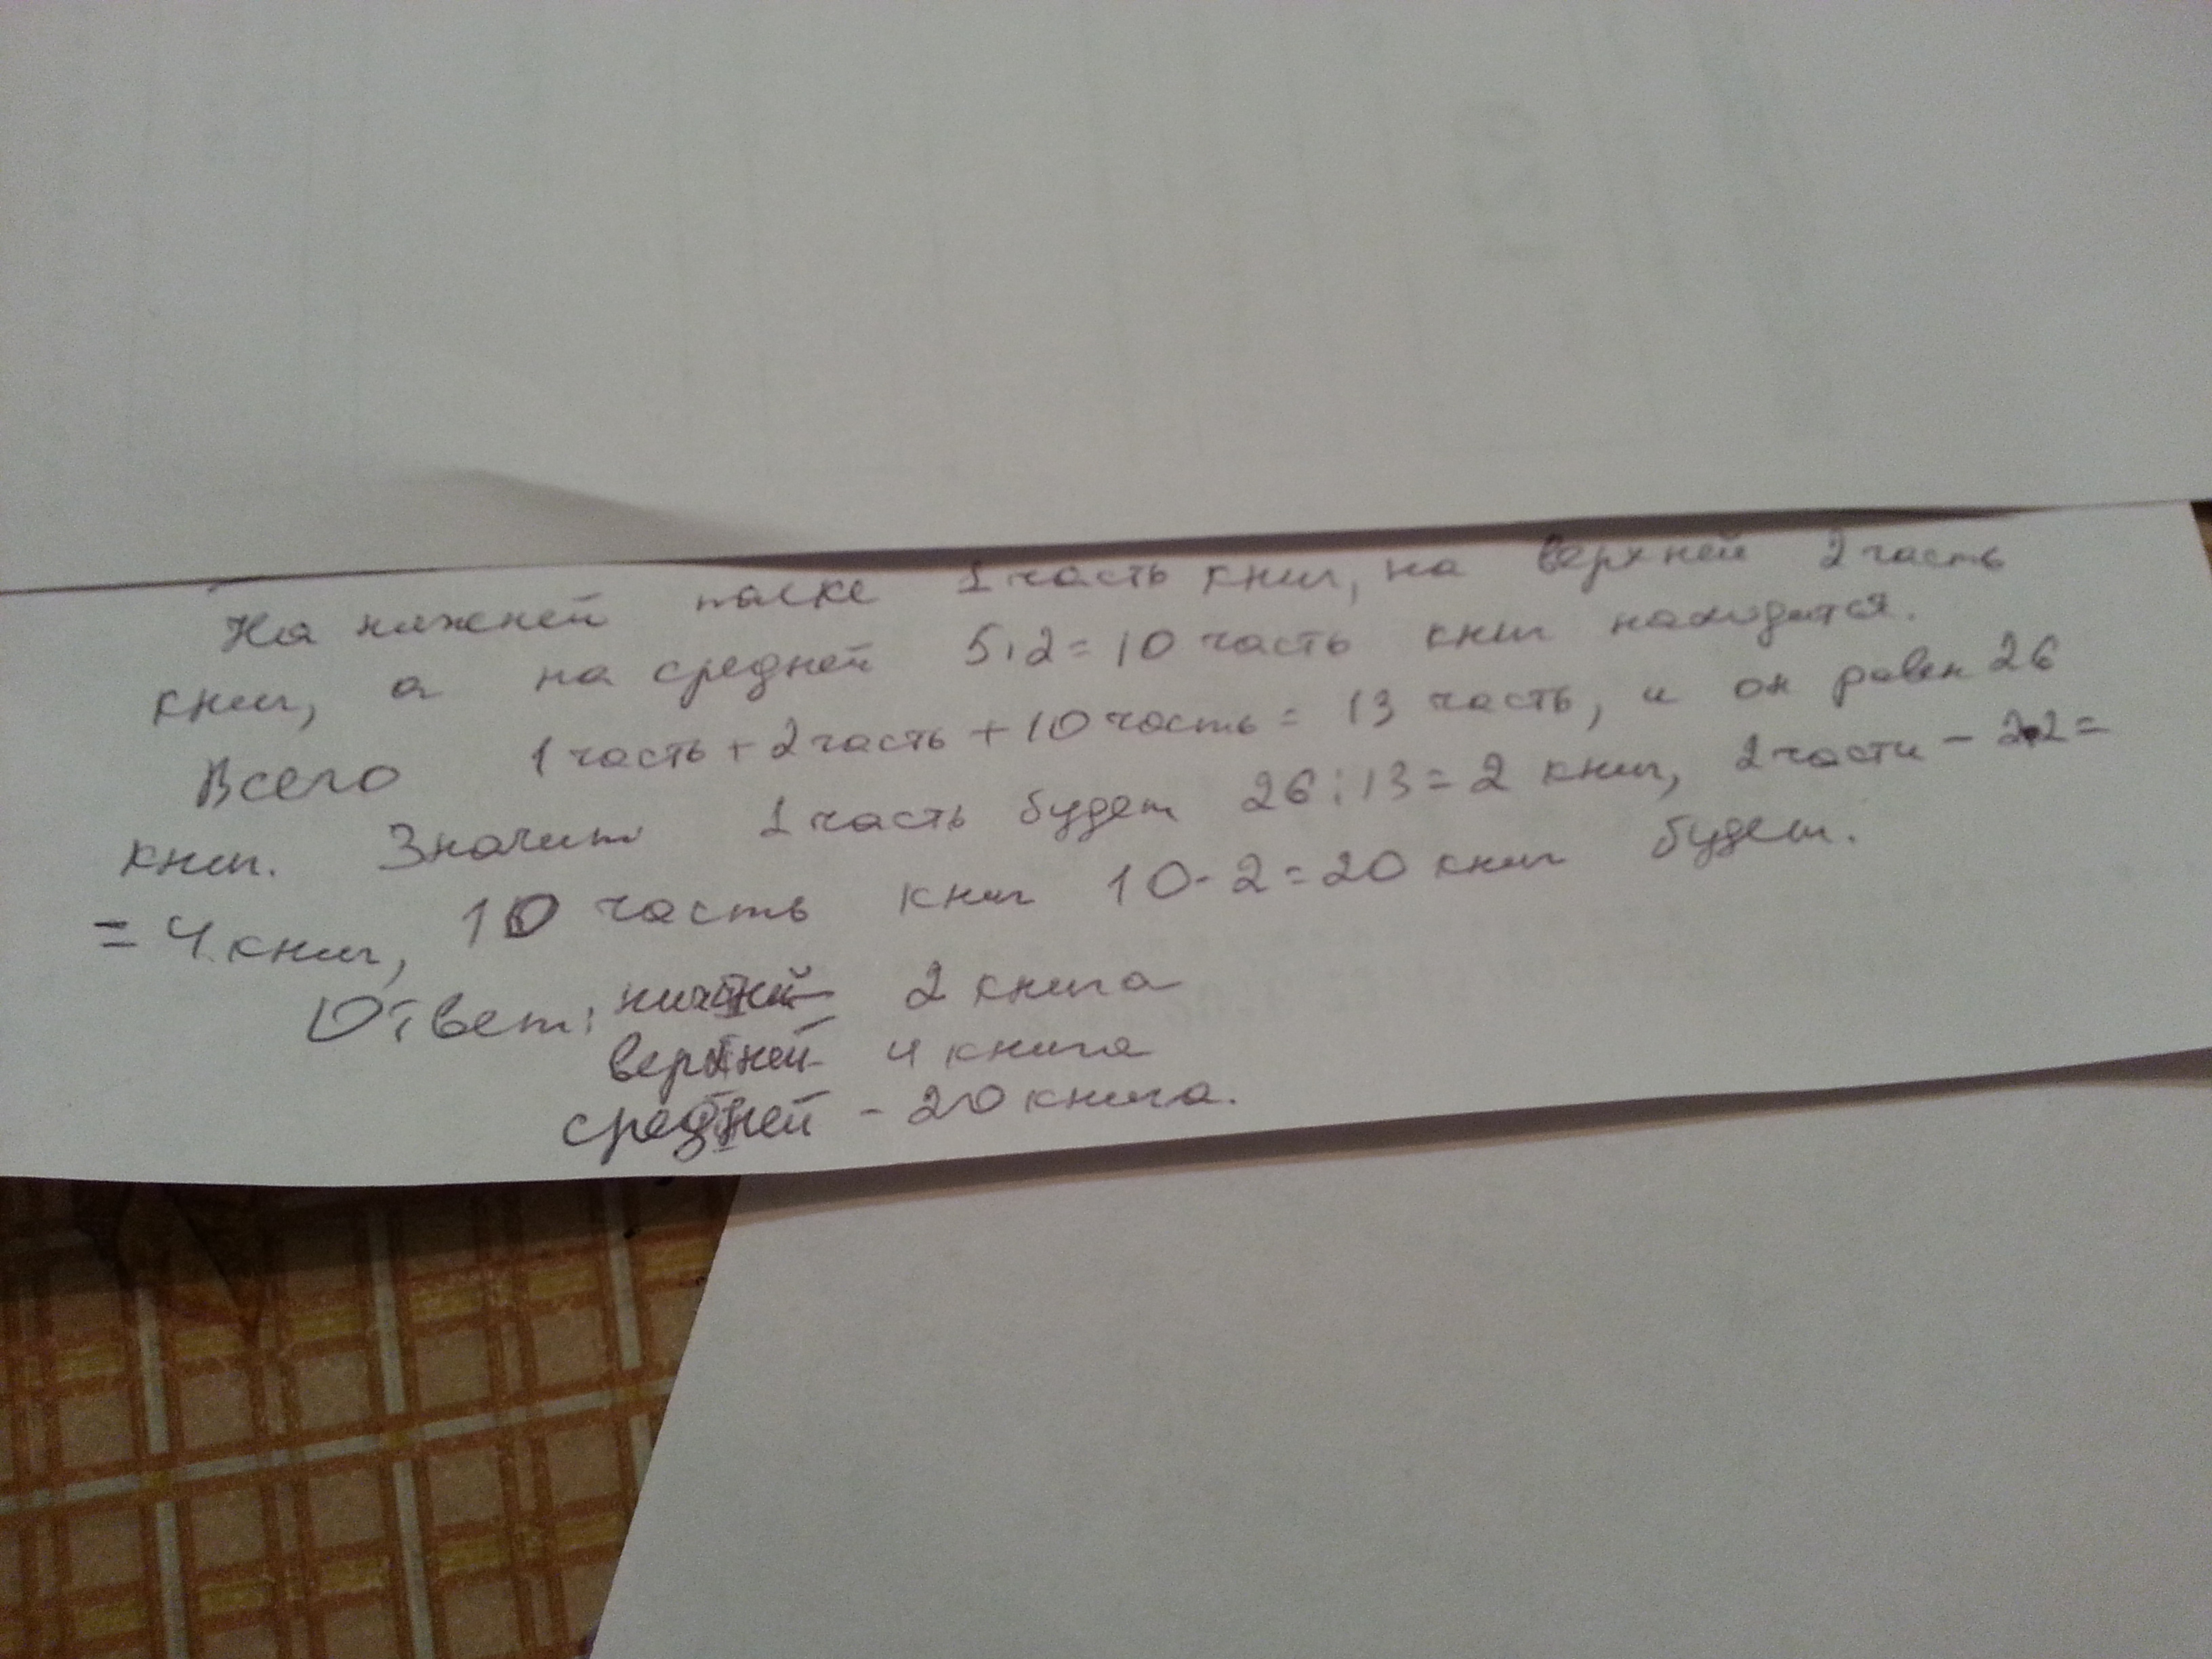 На нижней полке 1 часть книг, на верхней 2 часть
книг, а на средней 5·2=10 часть книг находится.
Всего 1 часть + 2 часть + 10 часть = 13 часть, и он равен 26
книг. Значит 1 часть будет 26:13=2 книг, 2 части - 2·2=
=4 книг, 10 часть книг 10·2=20 книг будет.
Ответ: нижней 2 книга
верхней - 4 книга
средней - 20 книга.